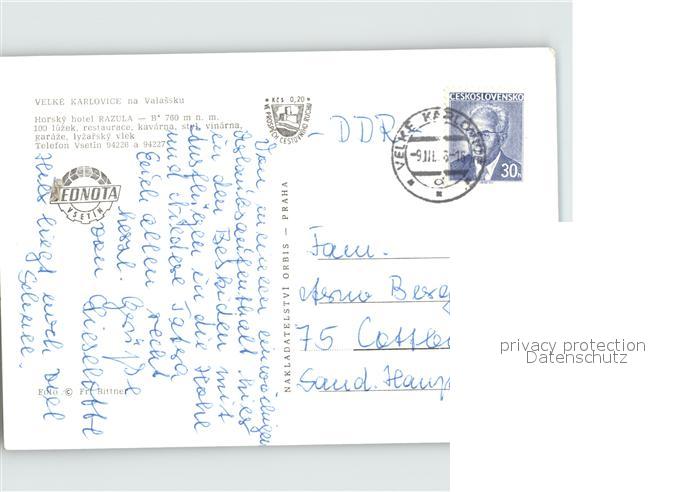 VELKÉ KARLOVICE na Valašsku
Horský hotel RAZULA — B* 760 m n. m.
100 lůžek, restaurace, kavárna, styl. vinárna,
garáže, lyžařský vlek
Telefon Vsetín 94226 a 94227
JEDNOTA
VSETÍN
Kčs 0,20
VE PROSPĚCH CESTOVNÍHO RUCHU
ČESKOSLOVENSKO
30h
VELKÉ KARLOVICE
-9.III.
NAKLADATELSTVÍ ORBIS — PRAHA
- DDR
Fam.
Arno Berg
75 Cottb
Sand. Haup
Von meinem einwöchigen
Urlaubsaufenthalt hier
in den Beskiden mit
Ausflügen in die Hohe
und Niedere Tatra
Euch allen recht
herzl. Grüße
von Lieselotte
Hier liegt noch viel
Schnee.
Foto © Fr. Bittner
privacy protection
Datenschutz